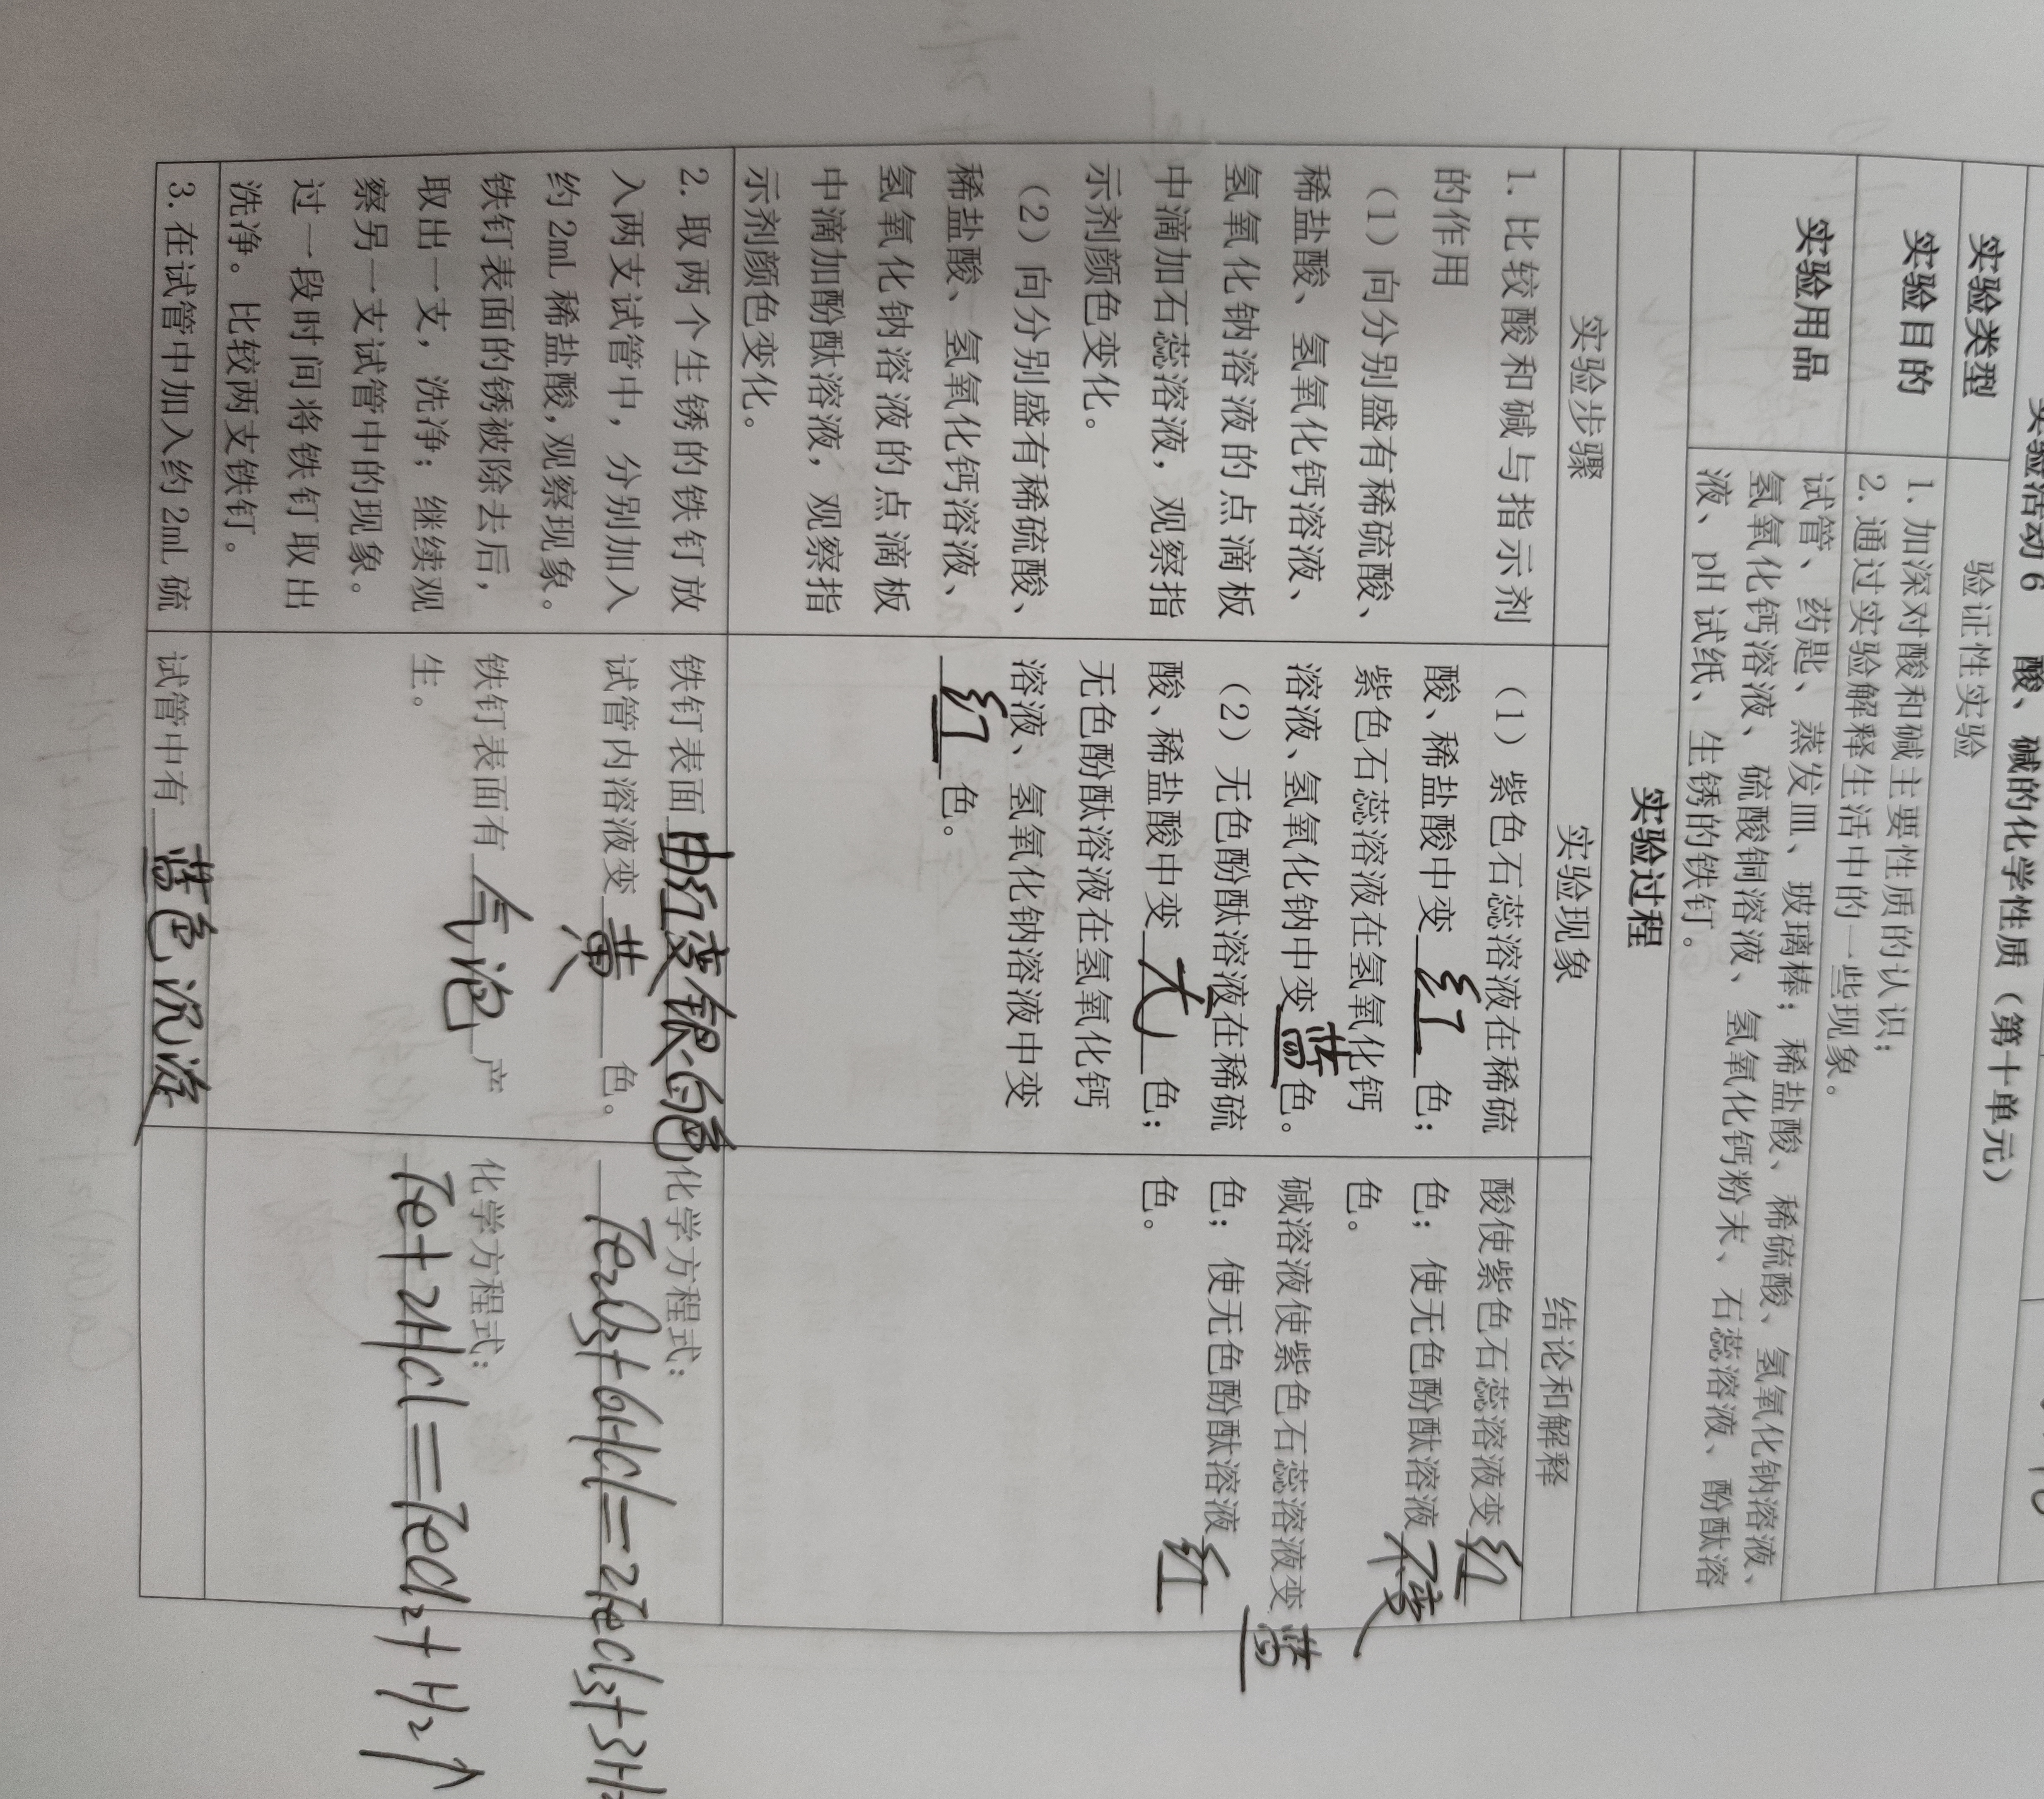 实验活动6 酸、碱的化学性质（第十单元）
实验类型 验证性实验
实验目的 1. 加深对酸和碱主要性质的认识；
2. 通过实验解释生活中的一些现象。
实验用品 试管、药匙、蒸发皿、玻璃棒；稀盐酸、稀硫酸、氢氧化钠溶液、
氢氧化钙溶液、硫酸铜溶液、氢氧化钙粉末、石蕊溶液、酚酞溶
液、pH 试纸、生锈的铁钉。
实验过程
实验步骤 实验现象 结论和解释
1. 比较酸和碱与指示剂
的作用
（1）向分别盛有稀硫酸、
稀盐酸、氢氧化钙溶液、
氢氧化钠溶液的点滴板
中滴加石蕊溶液，观察指
示剂颜色变化。
（2）向分别盛有稀硫酸、
稀盐酸、氢氧化钙溶液、
氢氧化钠溶液的点滴板
中滴加酚酞溶液，观察指
示剂颜色变化。
（1）紫色石蕊溶液在稀硫
酸、稀盐酸中变红色；
紫色石蕊溶液在氢氧化钙
溶液、氢氧化钠中变蓝色。
（2）无色酚酞溶液在稀硫
酸、稀盐酸中变无色；
无色酚酞溶液在氢氧化钙
溶液、氢氧化钠溶液中变
红色。
酸使紫色石蕊溶液变红
色；使无色酚酞溶液不变
色。
碱溶液使紫色石蕊溶液变蓝
色；使无色酚酞溶液红
色。
2. 取两个生锈的铁钉放
入两支试管中，分别加入
约 2mL 稀盐酸，观察现象。
铁钉表面的锈被除去后，
取出一支，洗净；继续观
察另一支试管中的现象。
过一段时间将铁钉取出
洗净。比较两支铁钉。
铁钉表面由红变银白色
试管内溶液变黄色。
铁钉表面有气泡产
生。
化学方程式：
Fe₂O₃+6HCl=2FeCl₃+3H₂
化学方程式：
Fe+2HCl=FeCl₂+H₂↑
3. 在试管中加入约 2mL 硫
试管中有蓝色沉淀